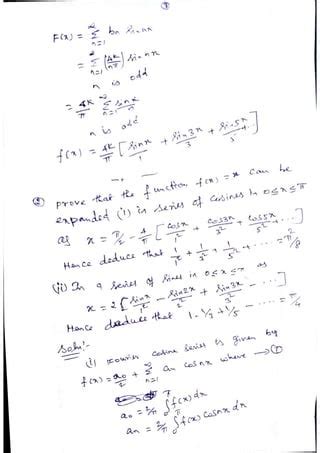 ③
F(x) = ∞ Σ n=1 bn sin nx
= ∞ Σ n=1 (4k/nπ) sin nx
n is odd
= 4k/π ∞ Σ n=1 sin nx/n
n is odd
f(x) = 4k/π [ sinx/1 + sin3x/3 + sin5x/5 + .. ]
② prove that the function f(x) = x can be
expanded (i) in series of cosines in 0≤x≤π
as x = π/2 - 4/π [ cosx/1² + cos3x/3² + cos5x/5² + ... ]
Hence deduce that 1/1² + 1/3² + 1/5² + .... = π²/8
(ii) In a series of sines in 0≤x≤π as
x = 2 [ sinx/1 - sin2x/2 + sin3x/3 - .... ]
Hence deduce that 1 - 1/3 + 1/5 - .... = π/4
Soln:-
(i) Fourier cosine series is given by
f(x) = a0/2 + ∞ Σ n=1 an cosnx where →①
a0 = 2/π ∫ f(x) dx
an = 2/π π ∫ f(x) cosnx dx